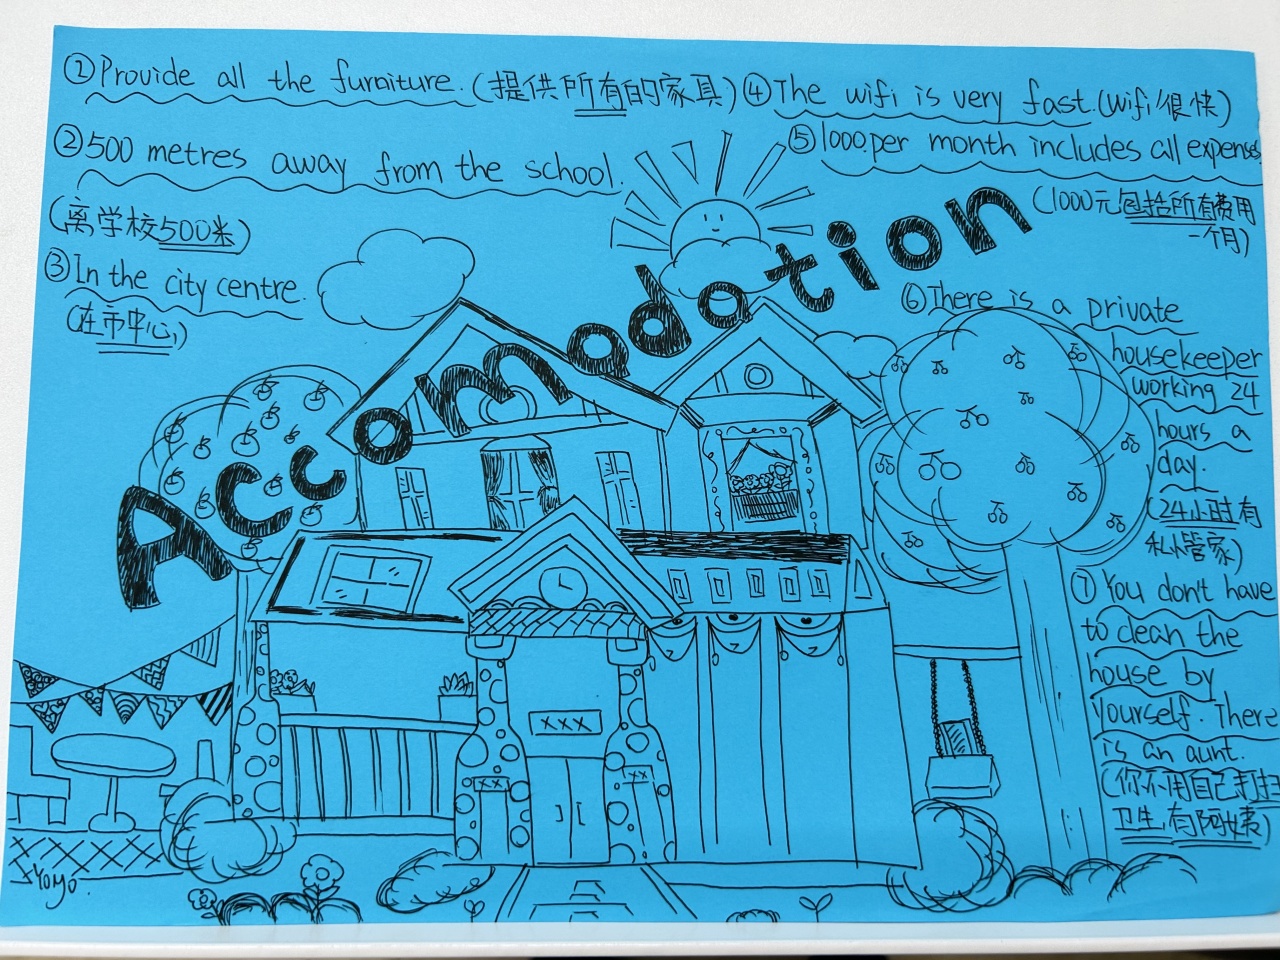 ①Provide all the furniture.(提供所有的家具)
②500 metres away from the school.
(离学校500米)
③In the city centre.
(在市中心)
④The wifi is very fast.(wifi很快)
⑤1000.per month includes all expenses.
(1000元包括所有费用
一个月)
⑥There is a private
housekeeper
working 24
hours a
day.
(24小时有
私人管家)
⑦You don't have
to clean the
house by
yourself. There
is an aunt.
(你不用自己打扫
卫生,有阿姨)
Accomodation
XXX
XX
XX
Yoyo.